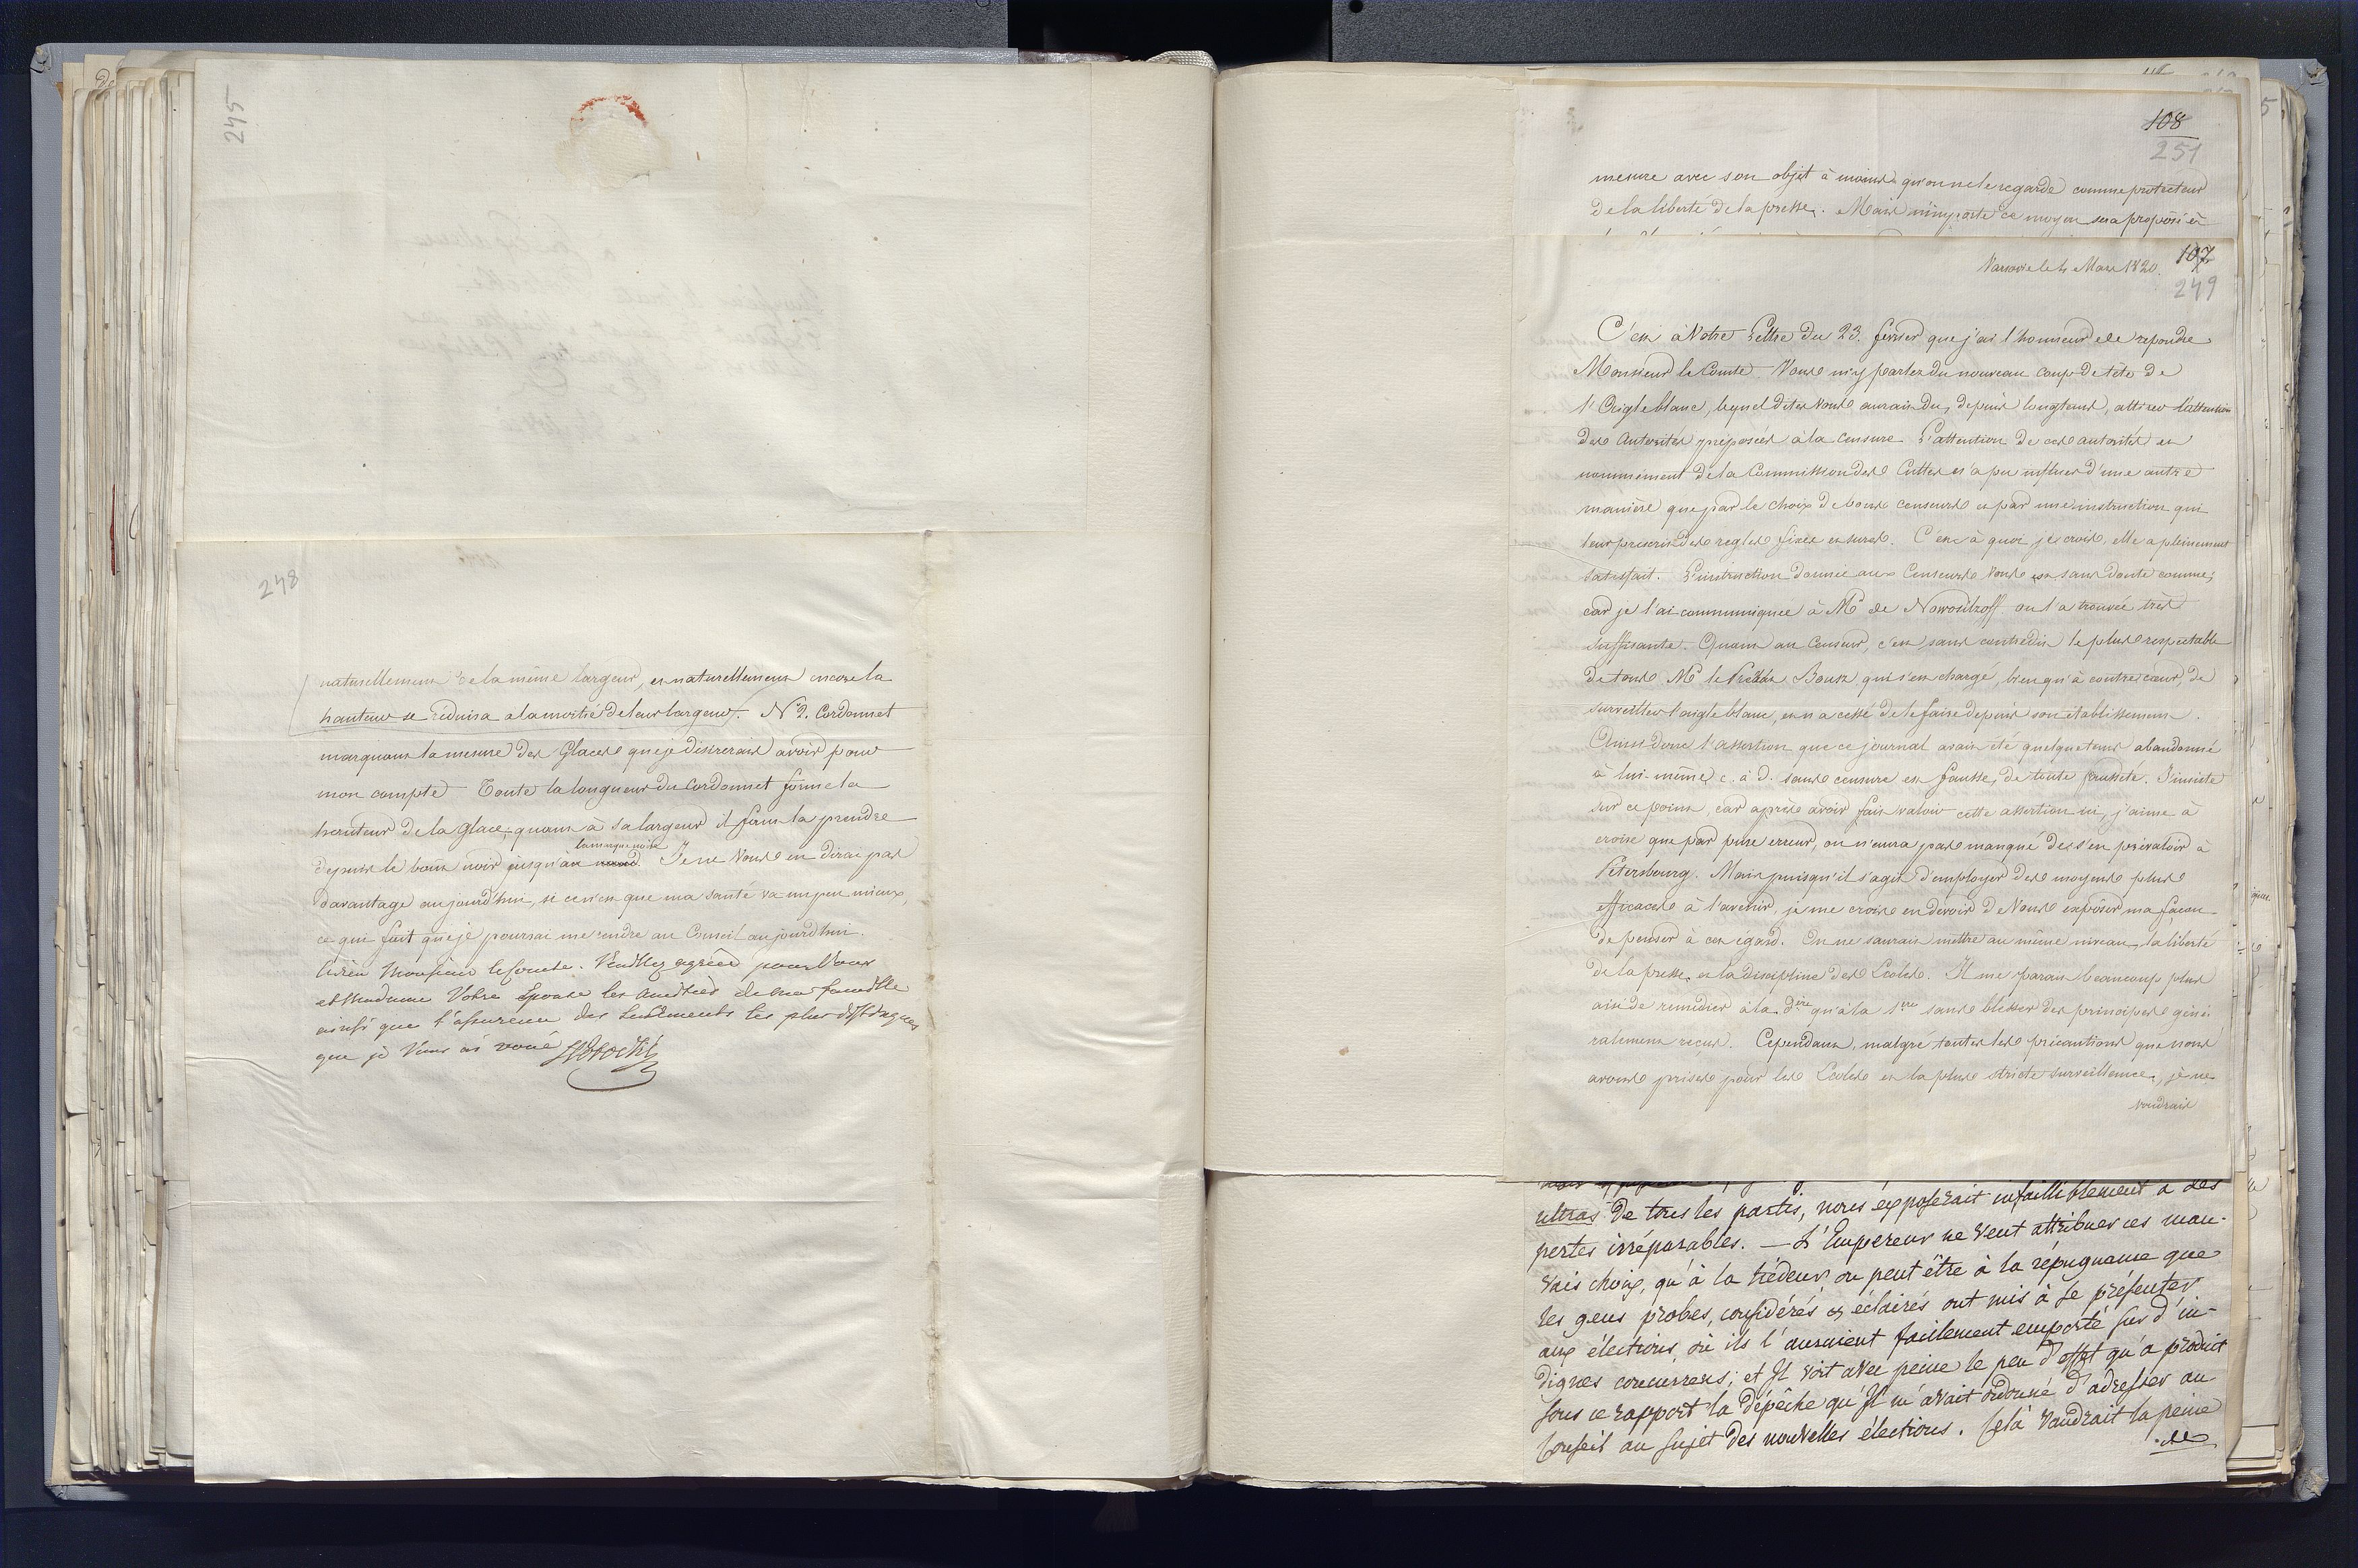 245
248
naturellement de la même largeur, et naturellement encore la
hauteur se réduira à la moitié de leur largeur. N° 2. Cordonnet
marquant la mesure des Glaces que je désirerais avoir pour
mon compte Toute la longueur du Cordonnet forme la
hauteur de la Glace, quant à sa largeur il faut la prendre
la marque noire
depuis le bout noir jusqu'à Je ne Vous en dirai pas
davantage aujourd'hui, si ce n'est que ma santé va un peu mieux,
ce qui fait que je pourrai me rendre au Conseil aujourd'hui.
Adieu Monsieur le Comte. Veuillez agréer pour Vous
et Madame Votre Epouse les amitiés de ma famille
ainsi que l'assurance des Sentiments les plus distingués
que je Vous ai voué
108
251
mesure avec son objet à moins qu'on ne le regarde comme protecteur
de la liberté de la presse. Mais n'importe ce moyen sera proposé et
107
Varsovie le 4 Mars 1820.
249
C'est à Votre Lettre du 23. février que j'ai l'honneur de repondre
Monsieur le Comte. Vous m'y parlez du nouveau coup de tête de
l'Aigle blanc, lequel dites Vous aurait du, depuis longtems, attirer l'attention
des Autorités préposées à la censure. L'attention de ces autorités et
nommément de la Commission des Cultes n'a pu influer d'une autre
manière que par le choix de bons censeurs et par une instruction qui
leur prescrit des regles fixes et sures. C'est à quoi, je crois, elle a pleinement
satisfait. L'instruction donnée aux Censeurs Vous est sans doute connue,
car je l'ai communiquée à Mr de Nowosiltzoff on l'a trouvée très
suffisante. Quant au Censeur, c'est sans contredit le plus respectable
de tous. Mr le qui s'est chargé, bien qu'à contre coeur, de
surveiller l'aigle blanc, et n'a cessé de le faire depuis son établissement.
Ainsi donc l'assertion que ce journal avait été quelque tems abandonné
à lui-même c. à d. sans censure est fausse, de toute fausseté. J'insiste
sur ce point, car après avoir fait valoir cette assertion ici, j'aime à
croire que par pure erreur, on n'aura pas manqué de s'en prévaloir à
Pétersbourg. Mais puisqu'il s'agit d'employer des moyens plus
efficaces à l'avenir, je me crois en devoir de Vous exposer ma façon
de penser à cet égard. On ne saurait mettre au même niveau, la liberté
de la presse, et la discipline des Ecoles. Il me parait beaucoup plus
aisé de remedier à la dère qu'à la 1ère sans blesser des principes géné-
ralement reçus. Cependant, malgré toutes les précautions que nous
avons prises pour les Ecoles et la plus stricte surveillance, je ne
voudrais
ultras de tous les partis, nous exposerait infailliblement à des
pertes irréparables. — L'Empereur ne veut attribuer ces mau-
vais choix, qu'à la tiédeur ou peut être à la répugnance que
les gens probes, considérés et éclairés ont mis à se présenter
aux élections, où ils l'auraient facilement emporté sur d'in-
dignes concurrens; et Il voit avec peine le peu d'effet qu'a produit
sous ce rapport la dépêche qu'Il m'avait ordonné d'adresser au
Conseil au sujet des nouvelles élections. Celà vaudrait la peine
de